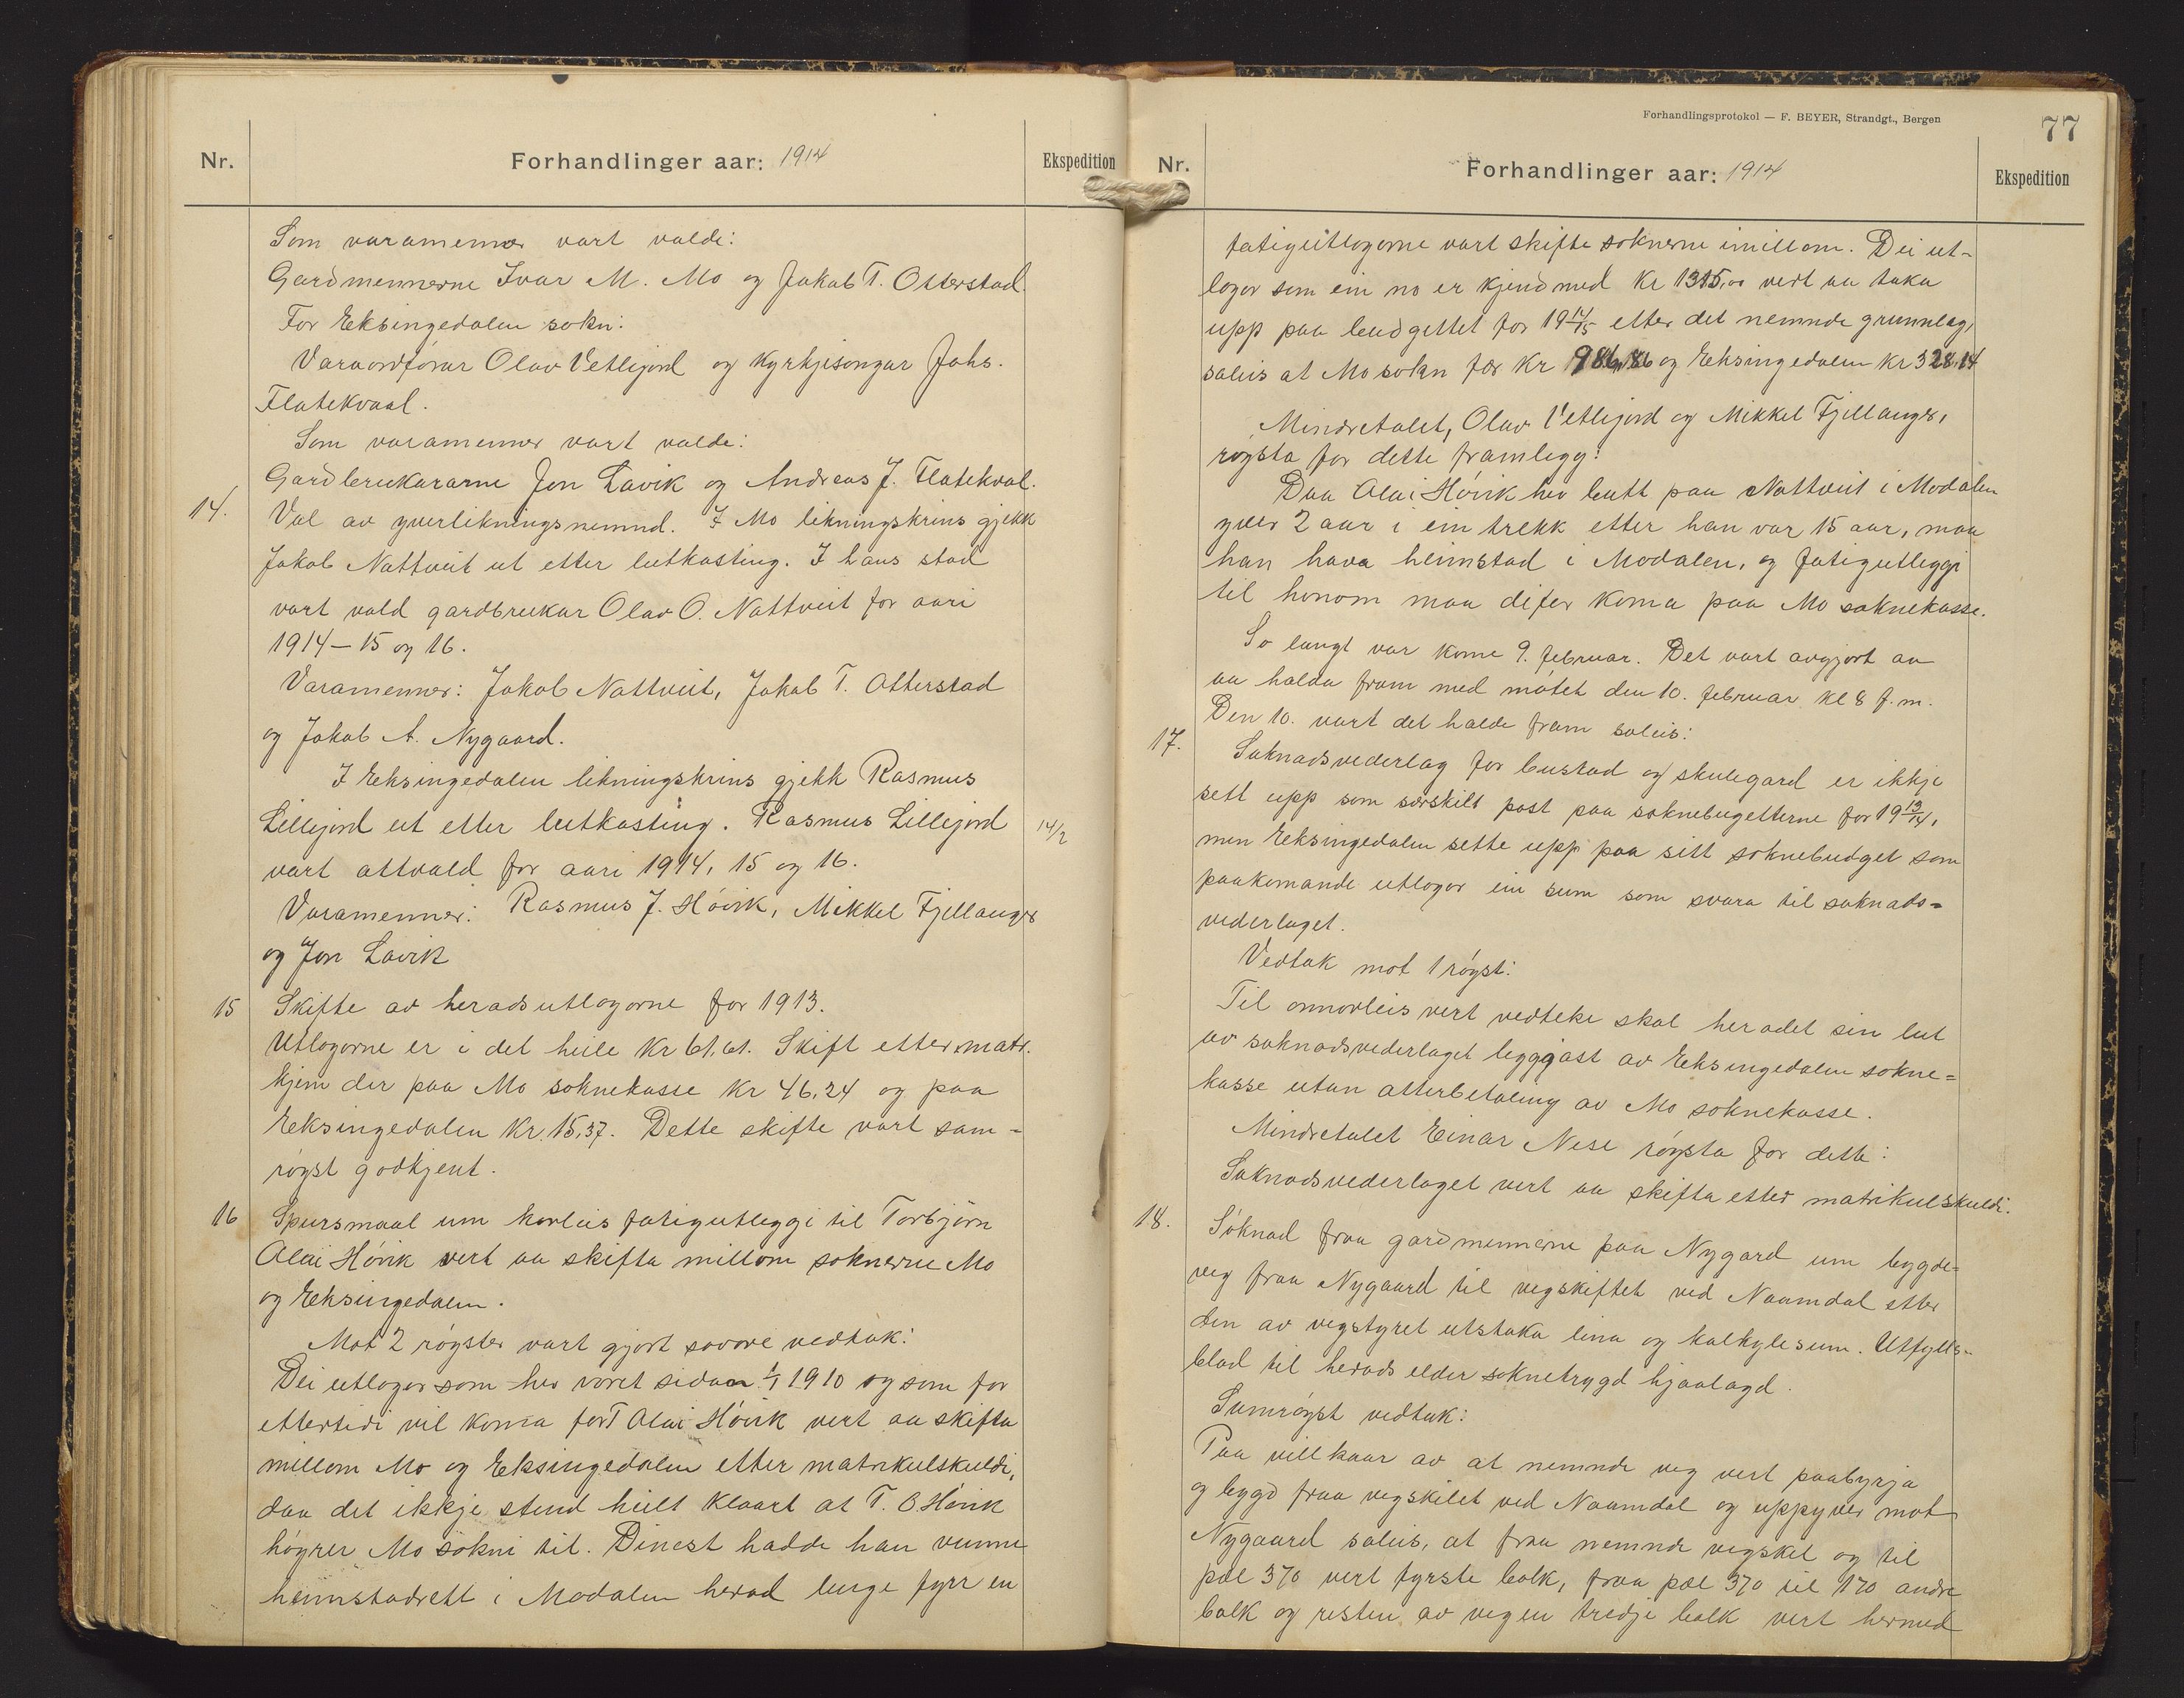 Nr.
Forhandlinger aar: 1914
Ekspedition
Som varamenner vart valde:
Gardmennerne Ivar M. Mo og Jakob T. Otterstad.
For Eksingedalen sokn:
Varaordförar Olav Vetlejord og kyrkjesongar Johs.
Flatekvaal.
Som varamenner vart valde:
Gardbrukararne Jon Lavik og Andreas J. Flatekval.
14. Val av yverlikningsnemnd. I Mo likningskrins gjekk
Jakob Nattveit ut etter lutkasting. I hans stad
vart vald gardbrukar Olav O. Nattveit for aari
1914–15 og 16.
Varamenner: Jakob Nattveit, Jakob T. Otterstad
og Jakob A. Nygaard.
I Eksingedalen likningskrins gjekk Rasmus
Lillejord ut etter lutkasting. Rasmus Lillejord 14/2
vart attvald for aari 1914, 15 og 16.
Varamenner: Rasmus J. Hövik, Mikkel Fjellanger
og Jon Lavik
15 Skifte av heradsutlogorne for 1913.
Utlogorne er i det heile kr 61,61. Skift etter matr.
kjem der paa Mo soknekasse kr 46,24 og paa
Eksingedalen kr. 15,37. Dette skifte vart sam-
röyst godkjent.
16 Spursmaal um korleis fatigutleggi til Torbjörn
Olai Hövik vert aa skifta millom soknerne Mo
og Eksingedalen.
Mot 2 röyster vart gjort sovore vedtak:
Dei utlogor som hev voret sidan 1/1 1910 og som for
ettertidi vil koma for T Olai Hövik vert aa skifta
millom Mo og Eksingedalen etter matrikulskuldi,
daa det ikkje stend heilt klaart at T. O Hövik
höyrer Mo sokni til. Dinest hadde han vunne
heimstadrett i Modalen herad lenge fyrr en
Forhandlingsprotokol — F. BEYER, Strandgt., Bergen
77
Nr.
Forhandlinger aar: 1914
Ekspedition
fatigutlogorne vart skifte soknerne imillom. Dei ut-
logor som ein no er kjend med kr 1315,00 vert aa taka
upp paa budgettet for 1914/15 etter det nemnde grunnlag,
soleis at Mo sokn fær kr 986,86 og Eksingedalen kr 328,14
Mindretalet, Olav Vetlejord og Mikkel Fjellanger,
röysta for dette framlegg:
Daa Olai Hövik hev butt paa Nattveit i Modalen
yver 2 aar i ein trekk etter han var 15 aar, maa
han hava heimstad i Modalen, og fatigutleggi
til honom maa difor koma paa Mo soknekasse.
So langt var kome 9. februar. Det vart avgjort av
aa halda fram med mötet den 10. februar kl 8 f.m.
Den 10. vart det halde fram soleis:
17. Saknadsvederlag for bustad og skulegard er ikkje
sett upp som særskilt post paa soknebugetterne for 1913/14,
men Eksingedalen sette upp paa sitt soknebudget som
paakomande utlogor ein sum som svara til saknads-
vederlaget.
Vedtak mot 1 röyst:
Til onnorleis vert vedteke skal heradet sin lut
av saknadsvederlaget leggjast av Eksingedalen sokne-
kasse utan atterbetaling av Mo soknekasse.
Mindretalet Einar Nese röysta for dette:
Saknadsvederlaget vert aa skifta etter matrikulskuldi.
18. Söknad fraa gardmennerne paa Nygard um bygde-
veg fraa Nygaard til vegskiftet ved Naamdal etter
den av vegstyret utstaka lina og kalkylesum. Utfyllt
blad til herads elder soknetrygd hjaalagd.
Samröyst vedtak:
Paa villkaar av at nemnde veg vert paabyrja
og bygd fraa vegskilet ved Naamdal og uppyver mot
Nygaard soleis, at fraa nemnde vegskel og til
pæl 370 vert fyrste bolk, fraa pæl 370 til 170 andre
bolk og resten av vegen tredje bolk vert hermed